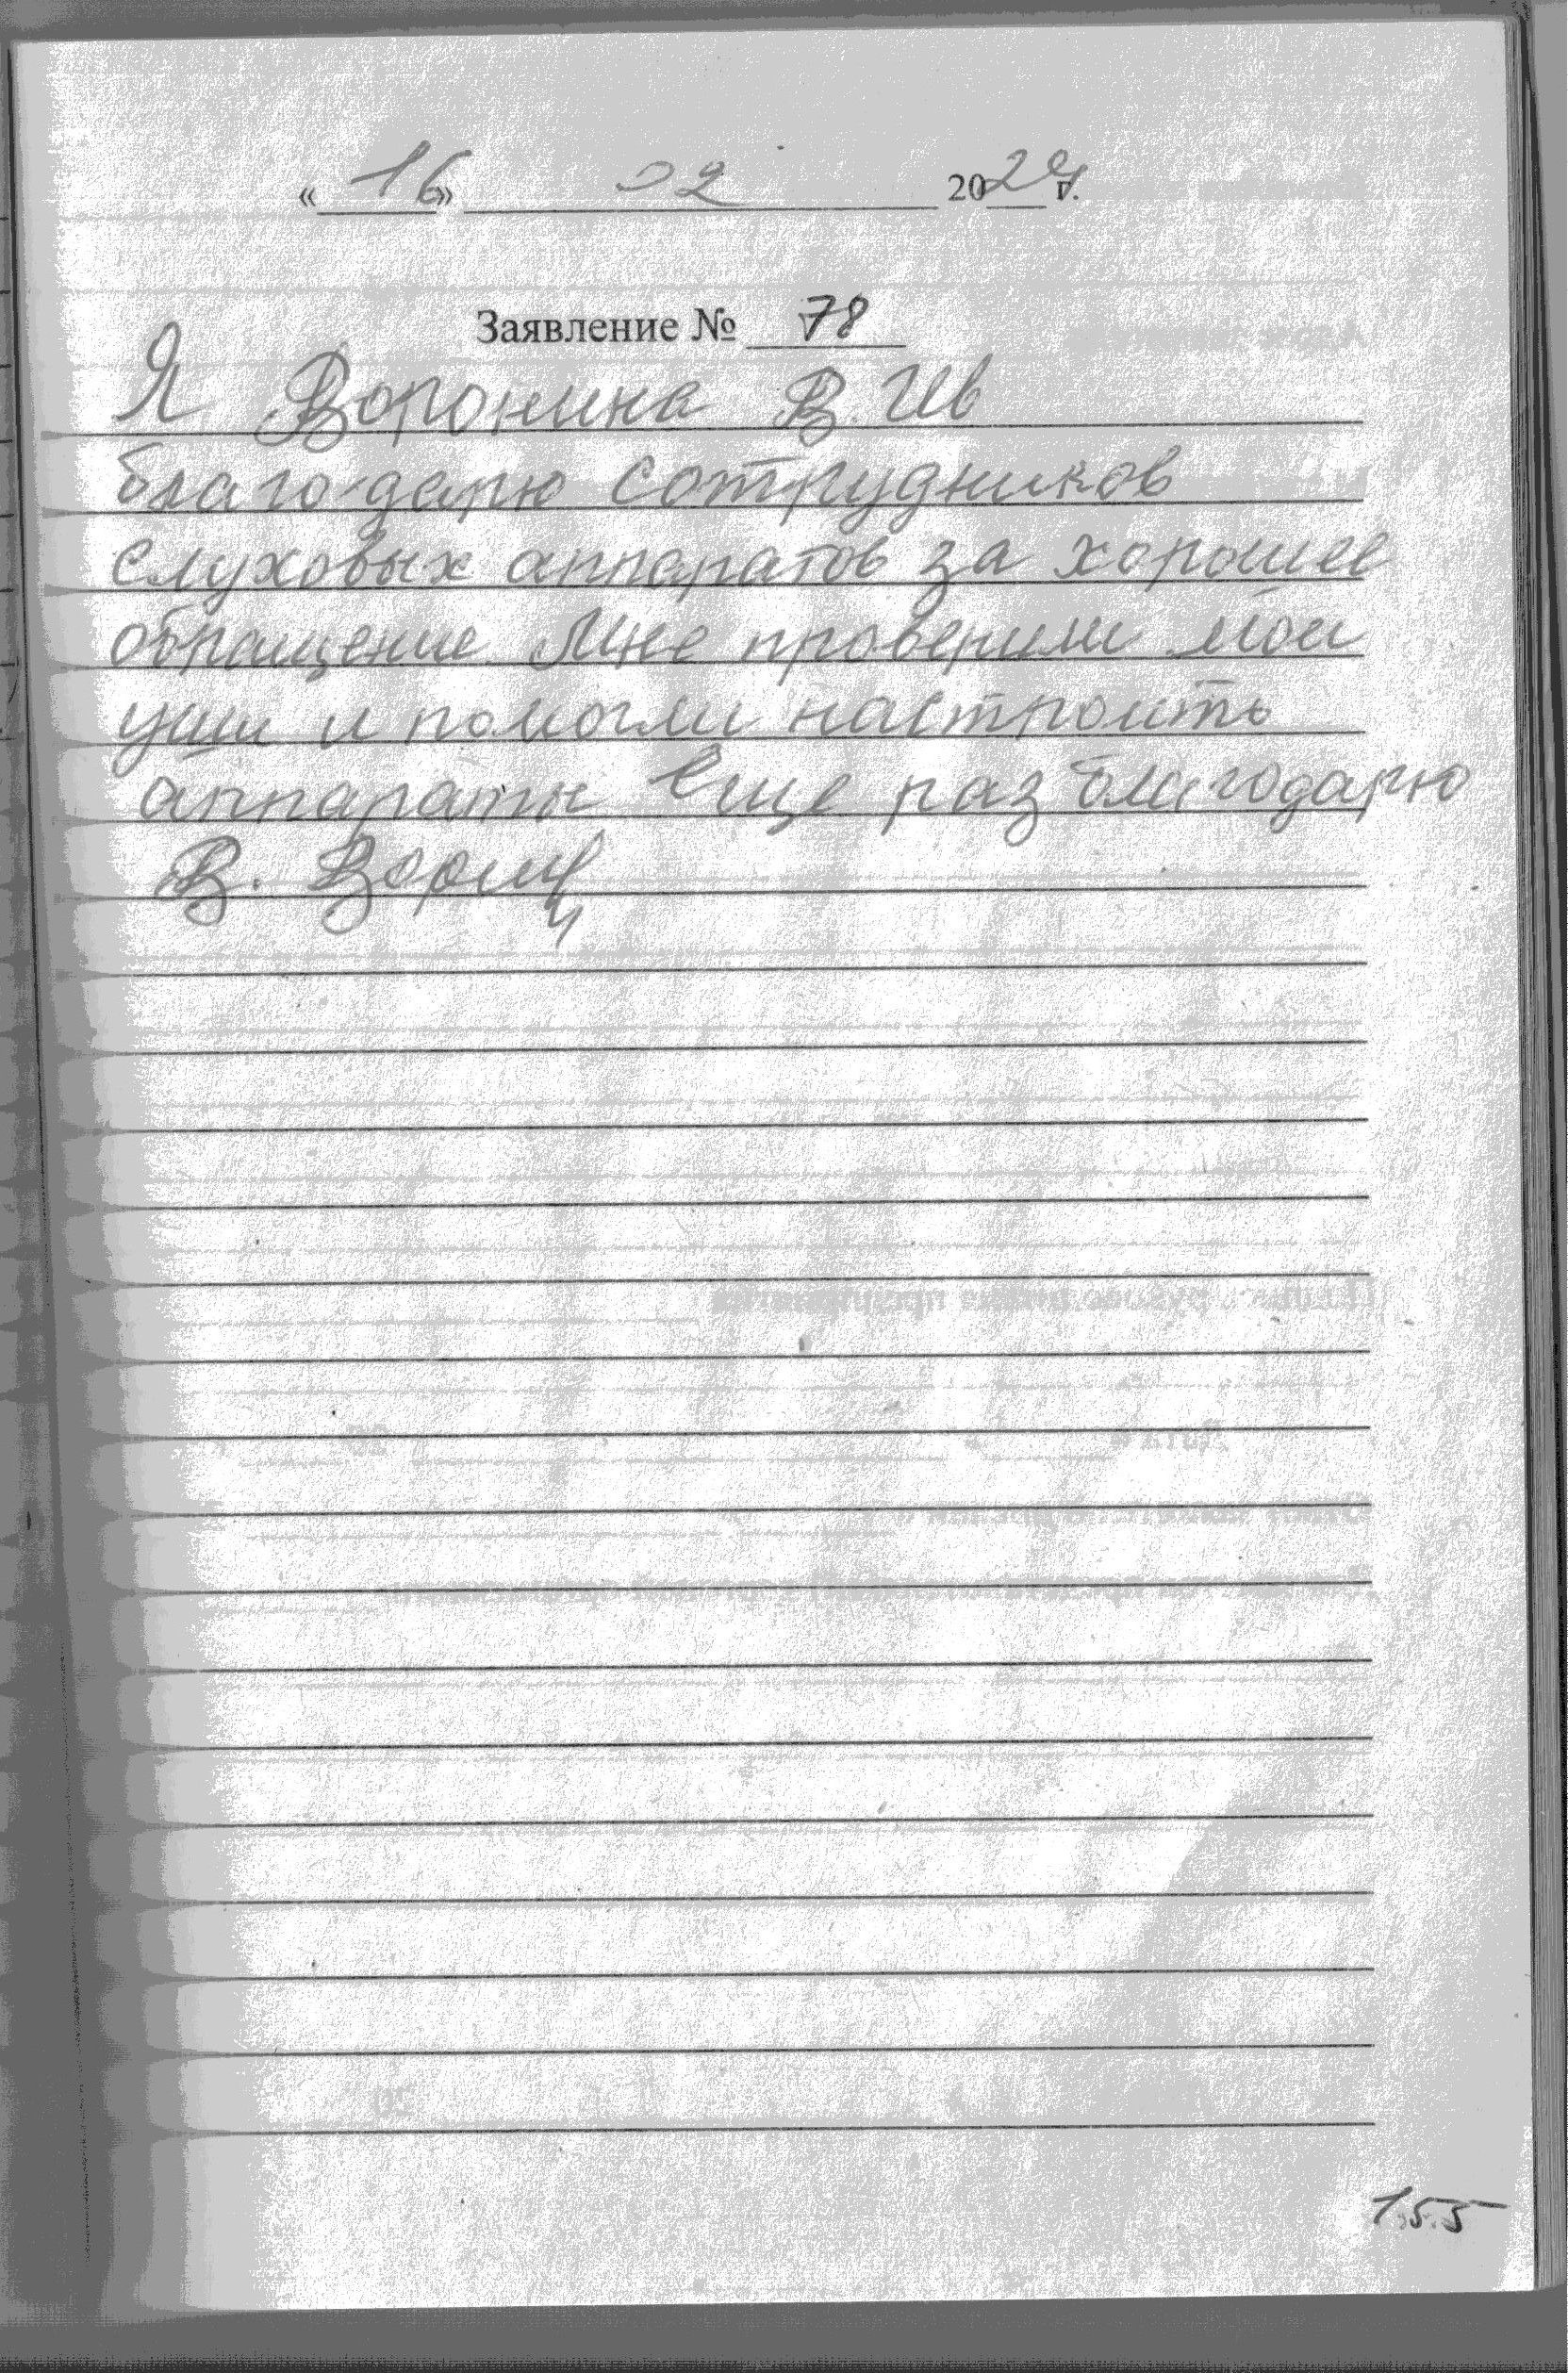 « 16 » 02 2024 г.
Заявление № 78
Я Воронина В. Ив
благодарю сотрудников
слуховых аппаратов за хорошее
обращение Мне проверили мои
уши и помогли настроить
аппараты Еще раз благодарю
В.
155